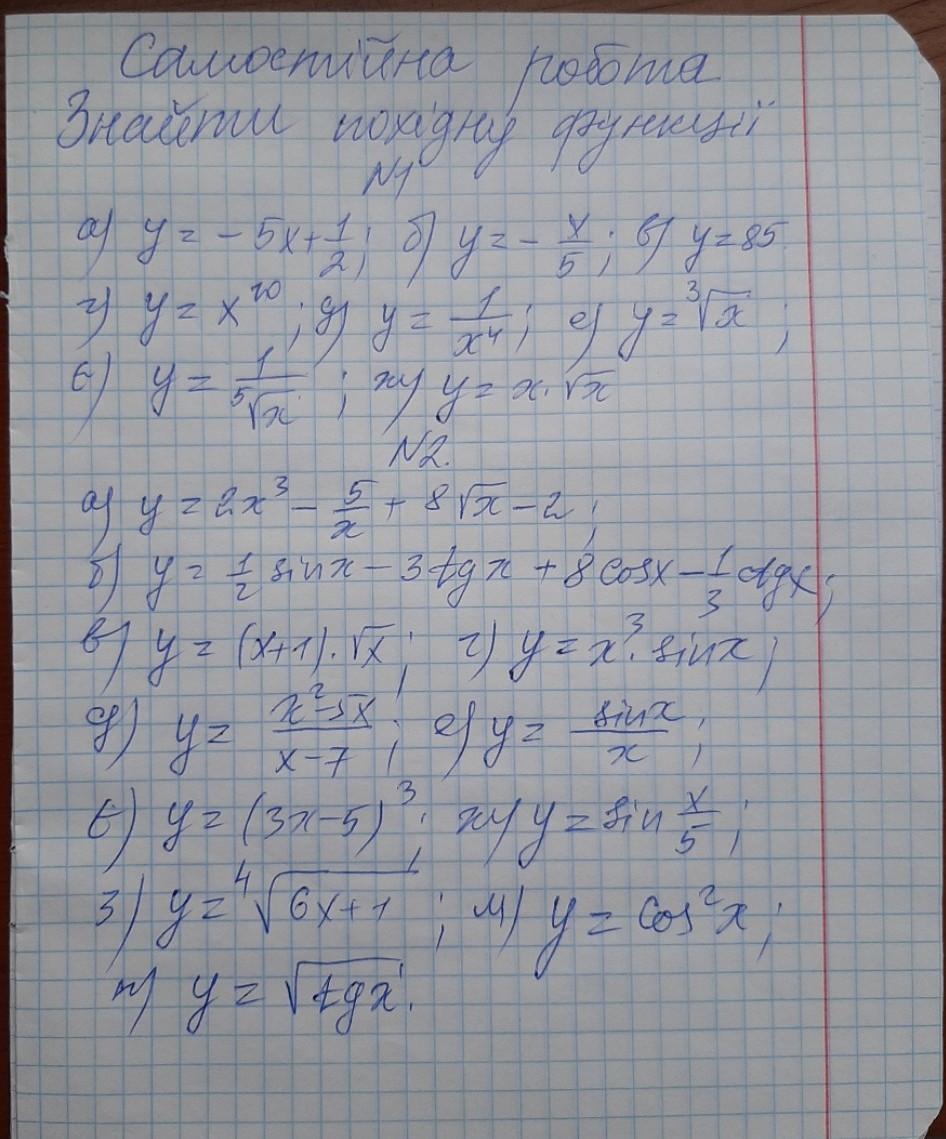 Самостійна робота
Знайти похідну функції
N1
а) y = - 5x + 1/2; б) y = - x/5; в) y = 85.
г) y = x¹⁰; д) y = 1/x⁴; е) y = ³√x;
є) y = 1/⁵√x; ж) y = x · √x
N2.
а) y = 2x³ - 5/x + 8√x - 2;
б) y = 1/2 sinx - 3tgx + 8cosx - 1/3 ctgx;
в) y = (x+1) · √x; г) y = x³ · sinx;
д) y = (x²-5x)/(x-7); е) y = sinx/x;
є) y = (3x-5)³; ж) y = sin x/5;
з) y = ⁴√(6x+1); и) y = cos²x;
к) y = √(tgx).